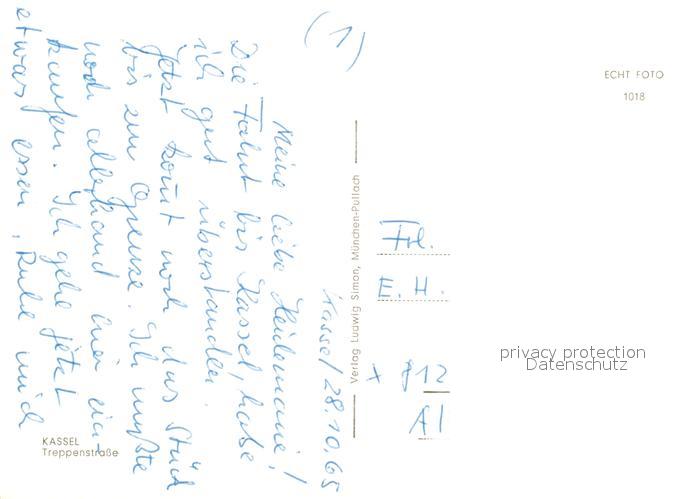 (1)
Kassel 28.10.65
Meine liebe Heidemarie!
Die Fahrt bis Kassel, habe
ich gut überstanden.
Jetzt komt noch das Stück
bis zur Grenze. Ich mußte
noch allerhand hier ein-
kaufen. Ich gehe jetzt
etwas essen, Ruhe mich
KASSEL
Treppenstraße
Verlag Ludwig Simon, München-Pullach
ECHT FOTO
1018
Frl.
E. H.
x 812
Al
privacy protection
Datenschutz